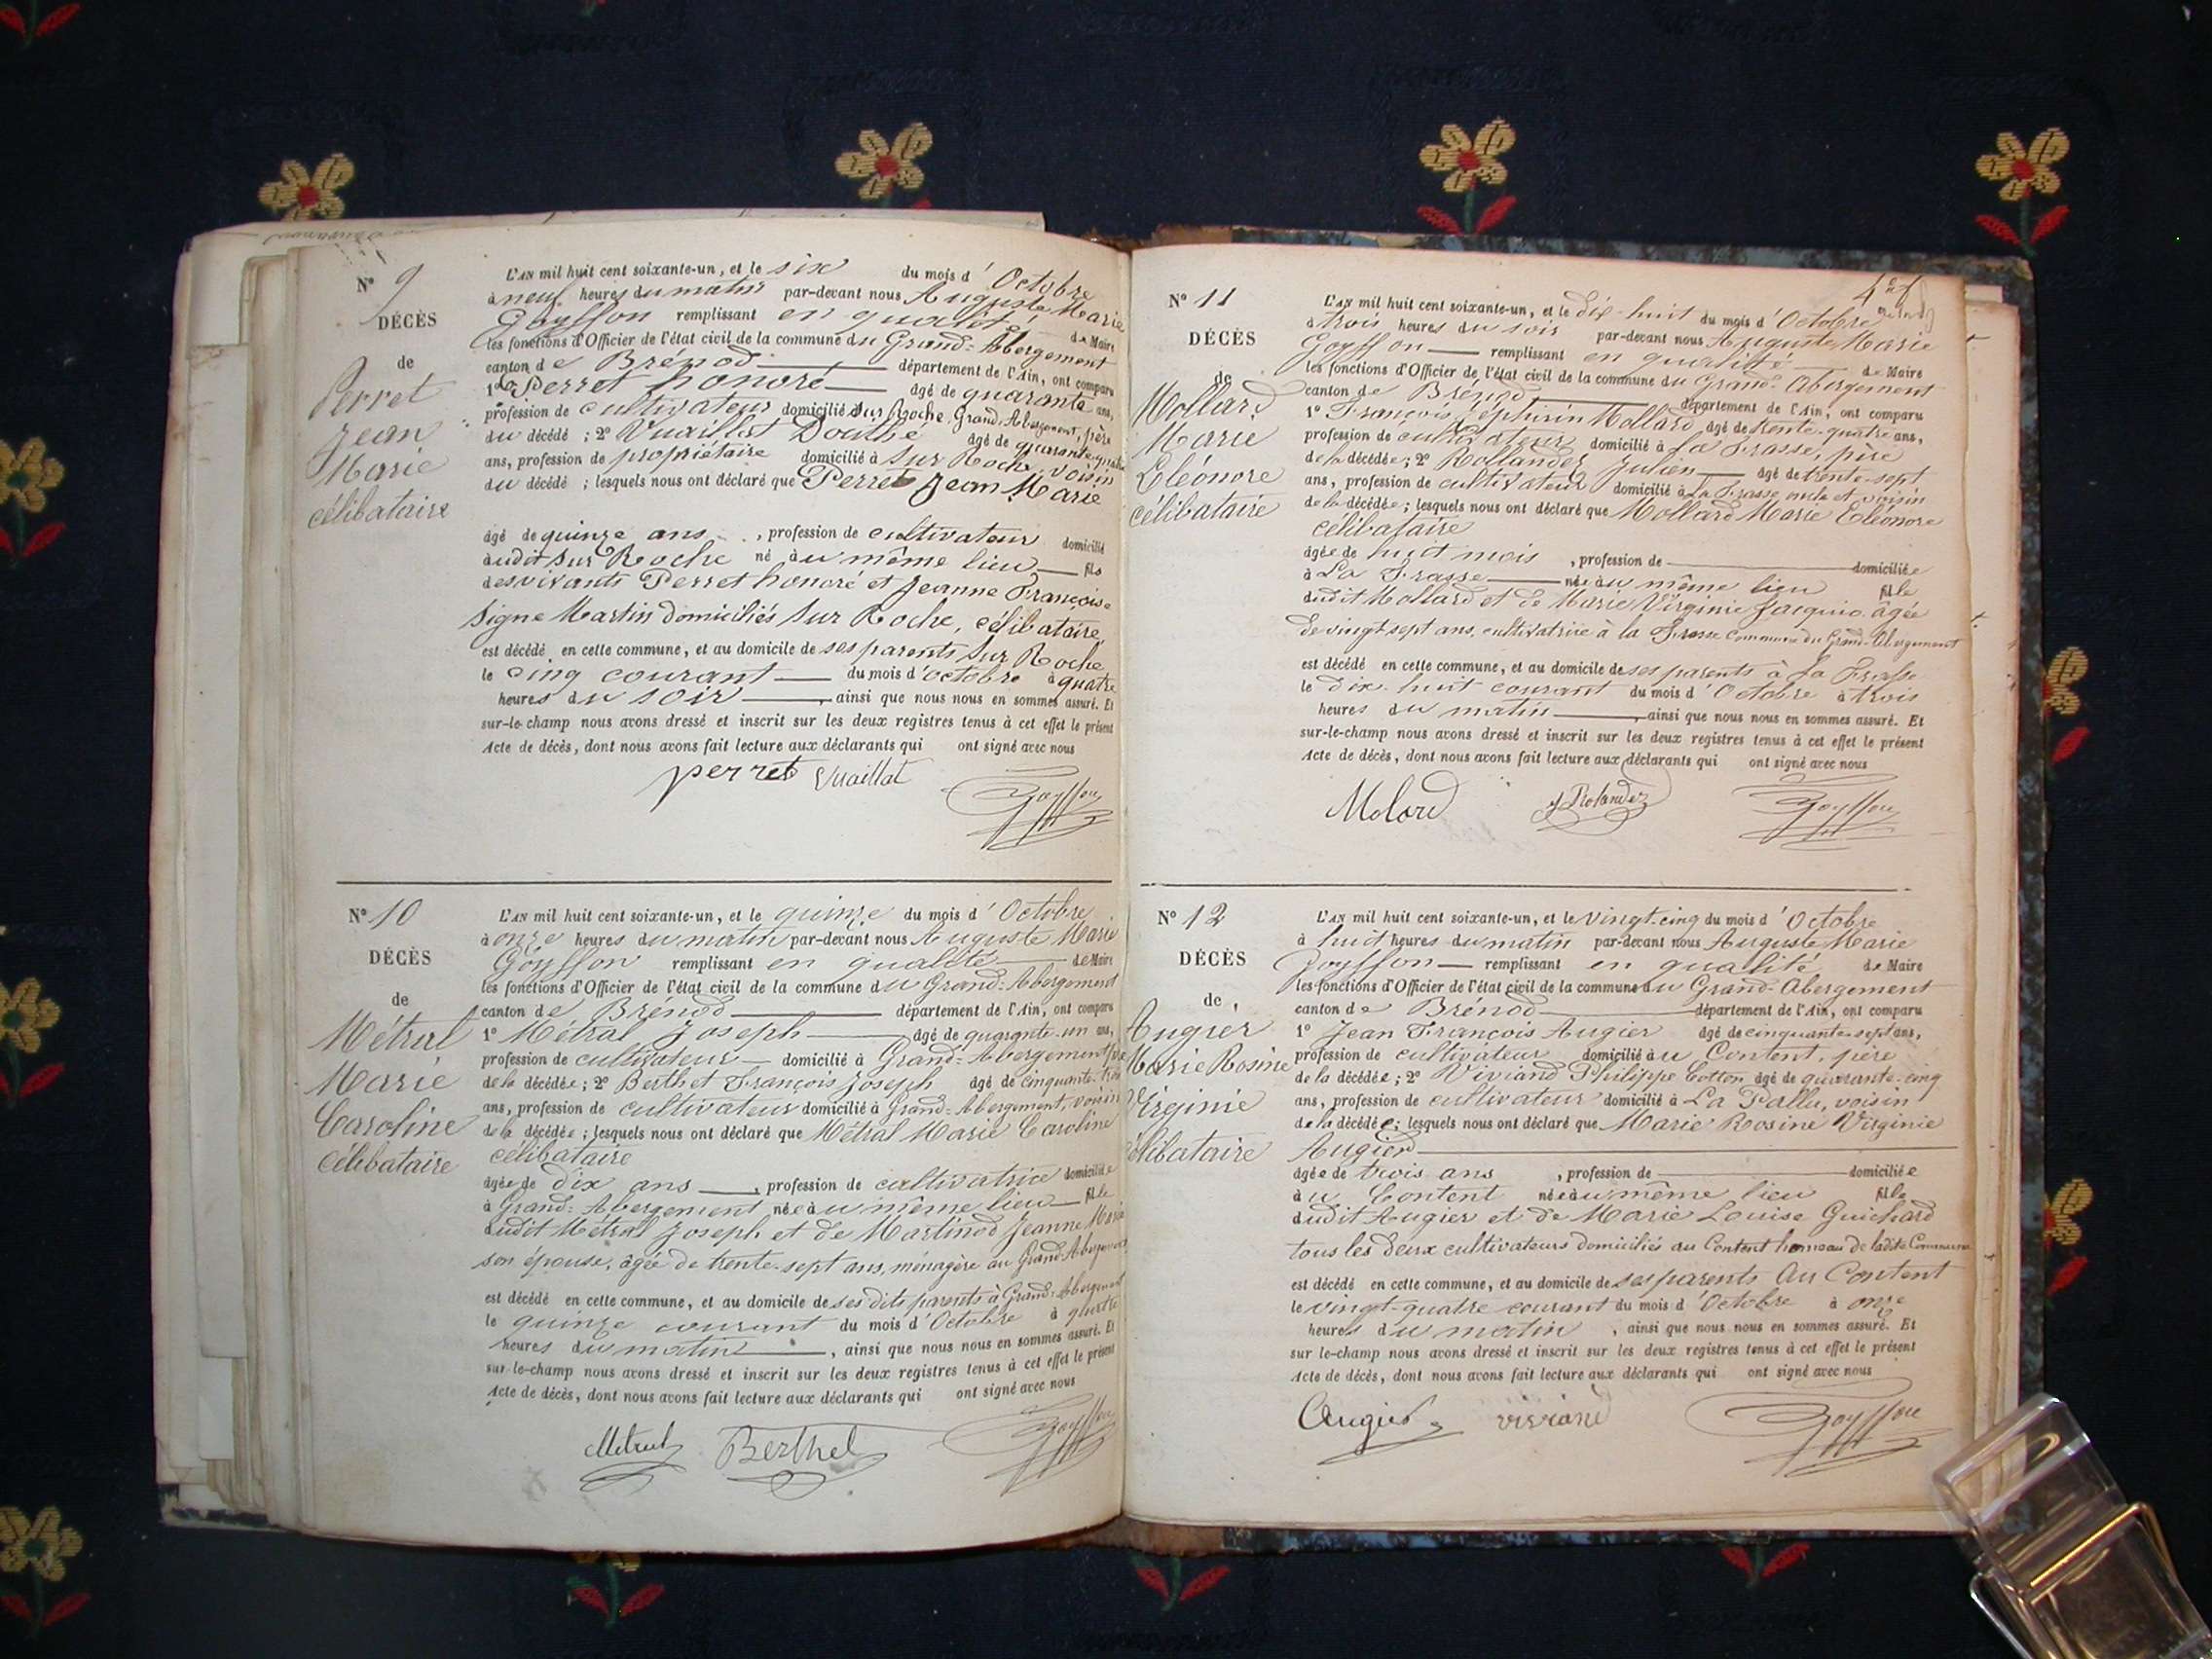 N° 9
DÉCÈS
de
Perret
Jean
Marie
célibataire
L'AN mil huit cent soixante-un, et le six du mois d'Octobre
à neuf heures du matin par-devant nous Auguste Marie
Goyffon remplissant en qualité de Maire
les fonctions d'Officier de l'état civil de la commune du Grand-Abergement
canton de Brénod département de l'Ain, ont comparu
1° Perret honoré âgé de quarante ans,
profession de cultivateur domicilié Sur Roche, Grand-Abergement, père
du décédé ; 2° Vuaillat âgé de quarante-quatre
ans, profession de propriétaire domicilié à Sur Roche, voisin
du décédé ; lesquels nous ont déclaré que Perret Jean Marie
âgé de quinze ans, profession de cultivateur domicilié
audit Sur Roche né au même lieu fils
des vivants Perret honoré et Jeanne Françoise
Signe Martin domiciliés Sur Roche, célibataire,
est décédé en cette commune, et au domicile de ses parents Sur Roche
le cinq courant du mois d'octobre à quatre
heures du soir, ainsi que nous nous en sommes assuré. Et
sur-le-champ nous avons dressé et inscrit sur les deux registres tenus à cet effet le présent
Acte de décès, dont nous avons fait lecture aux déclarants qui ont signé avec nous
perret Vuaillat Goyffon
N° 10
DÉCÈS
de
Métral
Marie
Caroline
Célibataire
L'AN mil huit cent soixante-un, et le quinze du mois d'Octobre
à onze heures du matin par-devant nous Auguste Marie
Goyffon remplissant en qualité de Maire
les fonctions d'Officier de l'état civil de la commune du Grand-Abergement
canton de Brénod département de l'Ain, ont comparu
1° Métral Joseph âgé de quarante-un ans,
profession de cultivateur domicilié à Grand-Abergement, père
de la décédée ; 2° Berthet François Joseph âgé de cinquante-trois
ans, profession de cultivateur domicilié à Grand-Abergement, voisin
de la décédée ; lesquels nous ont déclaré que Métral Marie Caroline
célibataire
âgée de dix ans, profession de cultivatrice domiciliée
à Grand-Abergement née au même lieu fille
dudit Métral Joseph et de Martinod Jeanne Marie
son épouse, âgée de trente-sept ans, ménagère au Grand-Abergement
est décédé en cette commune, et au domicile de ses dits parents à Grand-Abergement
le quinze courant du mois d'Octobre à quatre
heures du matin, ainsi que nous nous en sommes assuré. Et
sur-le-champ nous avons dressé et inscrit sur les deux registres tenus à cet effet le présent
Acte de décès, dont nous avons fait lecture aux déclarants qui ont signé avec nous
Métral Berthet Goyffon
N° 11
DÉCÈS
de
Mollard
Marie
Eléonore
célibataire
L'AN mil huit cent soixante-un, et le dix-huit du mois d'Octobre
à trois heures du soir par-devant nous Auguste Marie
Goyffon remplissant en qualité de Maire
les fonctions d'Officier de l'état civil de la commune du Grand-Abergement
canton de Brénod département de l'Ain, ont comparu
1° François Zéphirin Mollard âgé de trente-quatre ans,
profession de cultivateur domicilié à La Frasse, père
de la décédée ; 2° Rollandez Julien âgé de trente-sept
ans, profession de cultivateur domicilié à La Frasse oncle et voisin
de la décédée ; lesquels nous ont déclaré que Mollard Marie Eléonore
célibataire
âgée de huit mois, profession de domiciliée
à La Frasse née au même lieu fille
dudit Mollard et de Marie Virginie Jacquio âgée
de vingt-sept ans, cultivatrice à la Frasse commune du Grand-Abergement
est décédé en cette commune, et au domicile de ses parents à La Frasse
le dix-huit courant du mois d'Octobre à trois
heures du matin, ainsi que nous nous en sommes assuré. Et
sur-le-champ nous avons dressé et inscrit sur les deux registres tenus à cet effet le présent
Acte de décès, dont nous avons fait lecture aux déclarants qui ont signé avec nous
Molard J Rolandez Goyffon
N° 12
DÉCÈS
de
Augier
Marie Rosine
Virginie
célibataire
L'AN mil huit cent soixante-un, et le vingt-cinq du mois d'Octobre
à huit heures du matin par-devant nous Auguste Marie
Goyffon remplissant en qualité de Maire
les fonctions d'Officier de l'état civil de la commune du Grand-Abergement
canton de Brénod département de l'Ain, ont comparu
1° Jean François Augier âgé de cinquante-sept ans,
profession de cultivateur domicilié au Content, père
de la décédée ; 2° Viviand Philippe Cotton âgé de quarante-cinq
ans, profession de cultivateur domicilié à La Pallu, voisin
de la décédée ; lesquels nous ont déclaré que Marie Rosine Virginie
Augier
âgée de trois ans, profession de domiciliée
au Content née au même lieu fille
dudit Augier et de Marie Louise Guichard
tous les deux cultivateurs domiciliés au Content hameau de ladite Commune
est décédé en cette commune, et au domicile de ses parents Au Content
le vingt-quatre courant du mois d'Octobre à onze
heures du matin, ainsi que nous nous en sommes assuré. Et
sur le-champ nous avons dressé et inscrit sur les deux registres tenus à cet effet le présent
Acte de décès, dont nous avons fait lecture aux déclarants qui ont signé avec nous
Augier viviand Goyffon